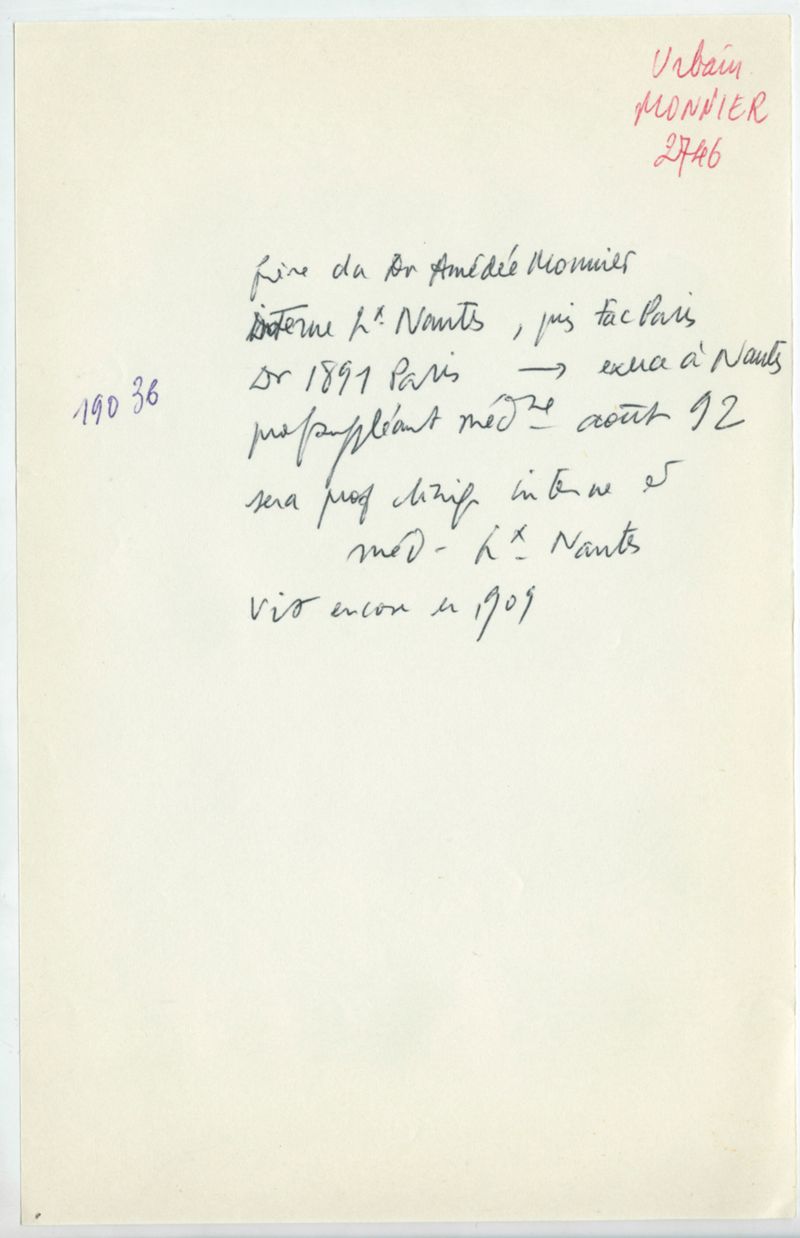 Urbain
MONNIER
2746
frère du Dr Amédée Monnier
interne hx Nantes, puis Fac Paris
Dr 1891 Paris → exerce à Nantes
190 36
prof suppléant médne août 92
sera prof cliniq interne et
méd - hx Nantes
Vit encore en 1909